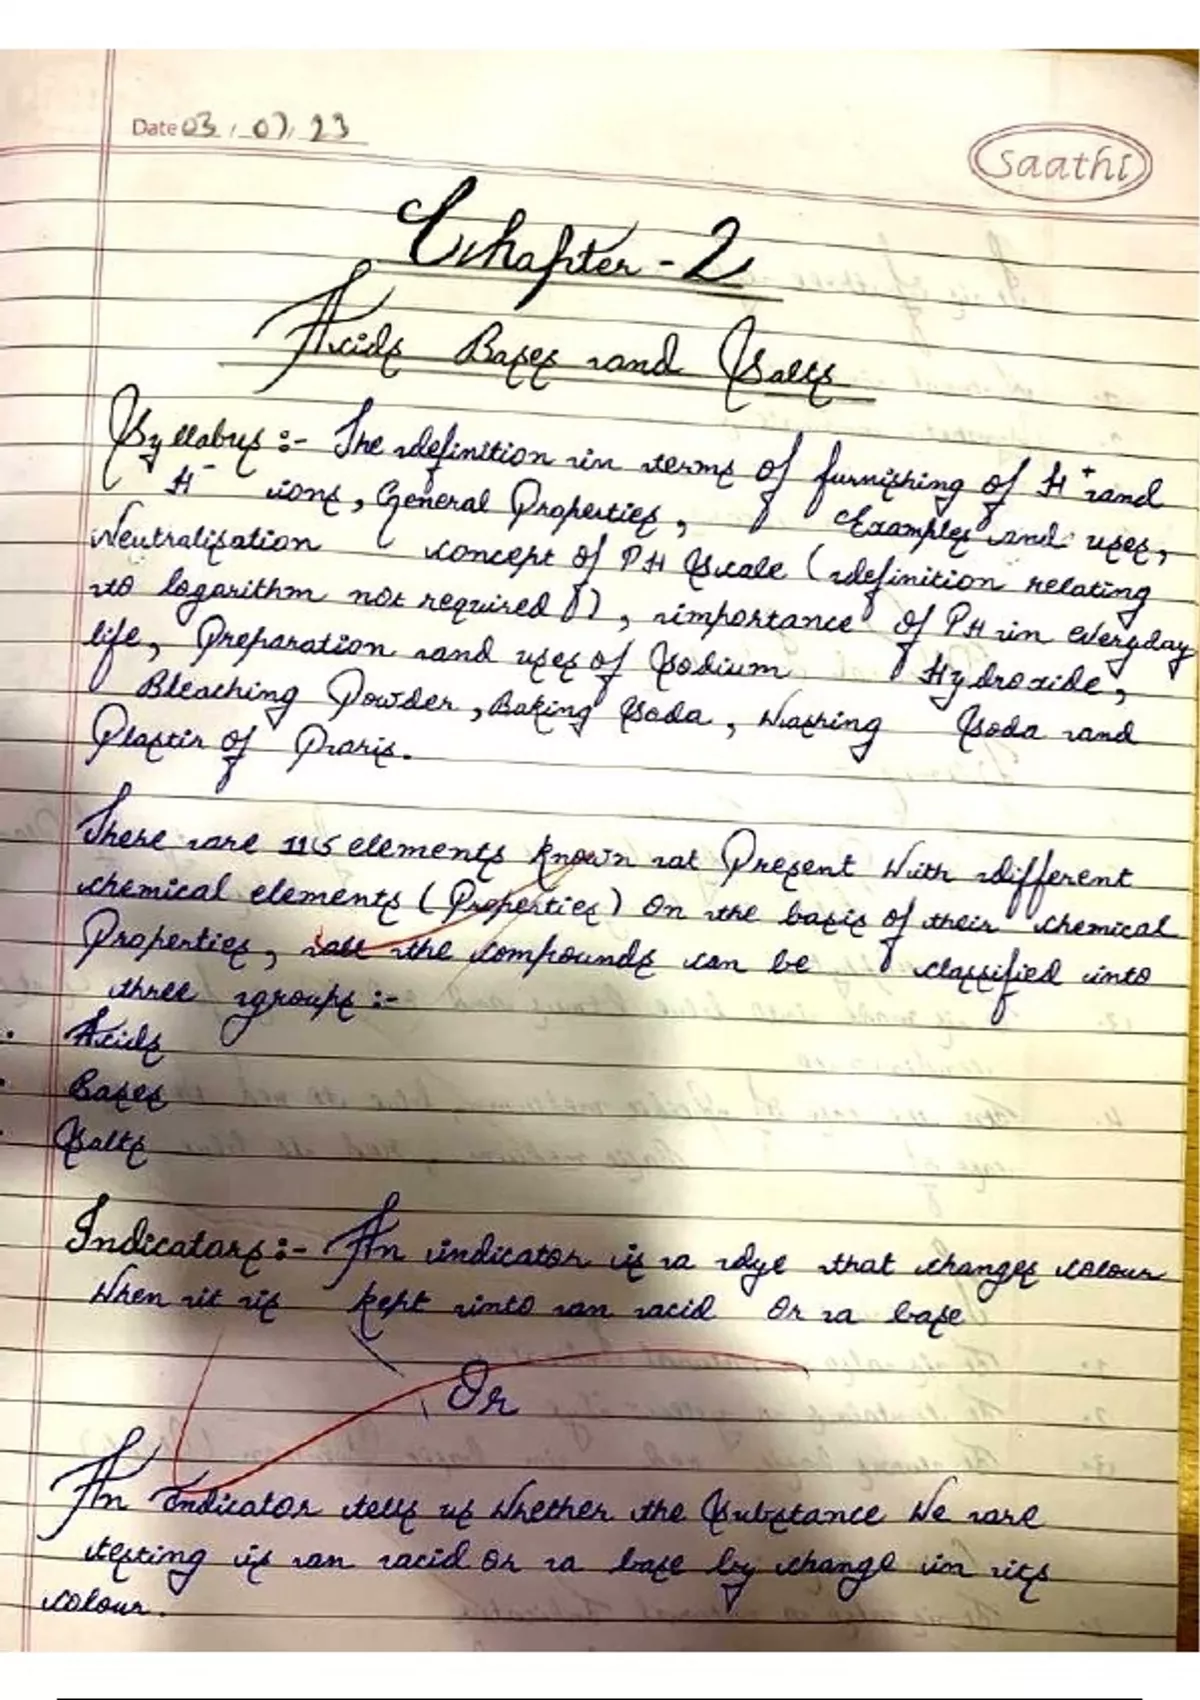 Date 03/07/23
Saathi
Chapter - 2
Acids Bases and Salts
Syllabus :- The definition in terms of furnishing of H+ and
H- ions, General Properties, Examples and uses,
Neutralisation concept of PH Scale (definition relating
to logarithm not required), importance of PH in everyday
life, Preparation and uses of Sodium Hydroxide,
Bleaching Powder, Baking Soda, Washing Soda and
Plastir of Praris.
There are 115 elements known at Present With different
chemical elements (Properties) On the basis of their chemical
Properties, all the compounds can be classified into
three groups :-
Acids
Bases
Salts
Indicators :- An indicator is a dye that changes colour
When it is kept into an acid Or a base
Or
An indicator tells us Whether the Substance We are
testing is an acid Or a base by change in its
colour.